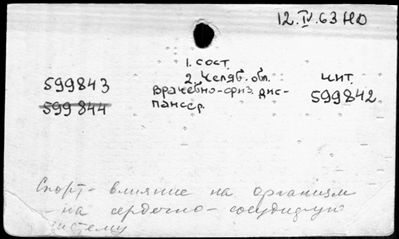 12.IV.63 НО
1. сост.
2. Челяб. обл.
врачебно-физ. дис-
пансер.
599843
599844
чит.
599842
Спорт - влияние на организм
- на сердечно-сосудистую
систему